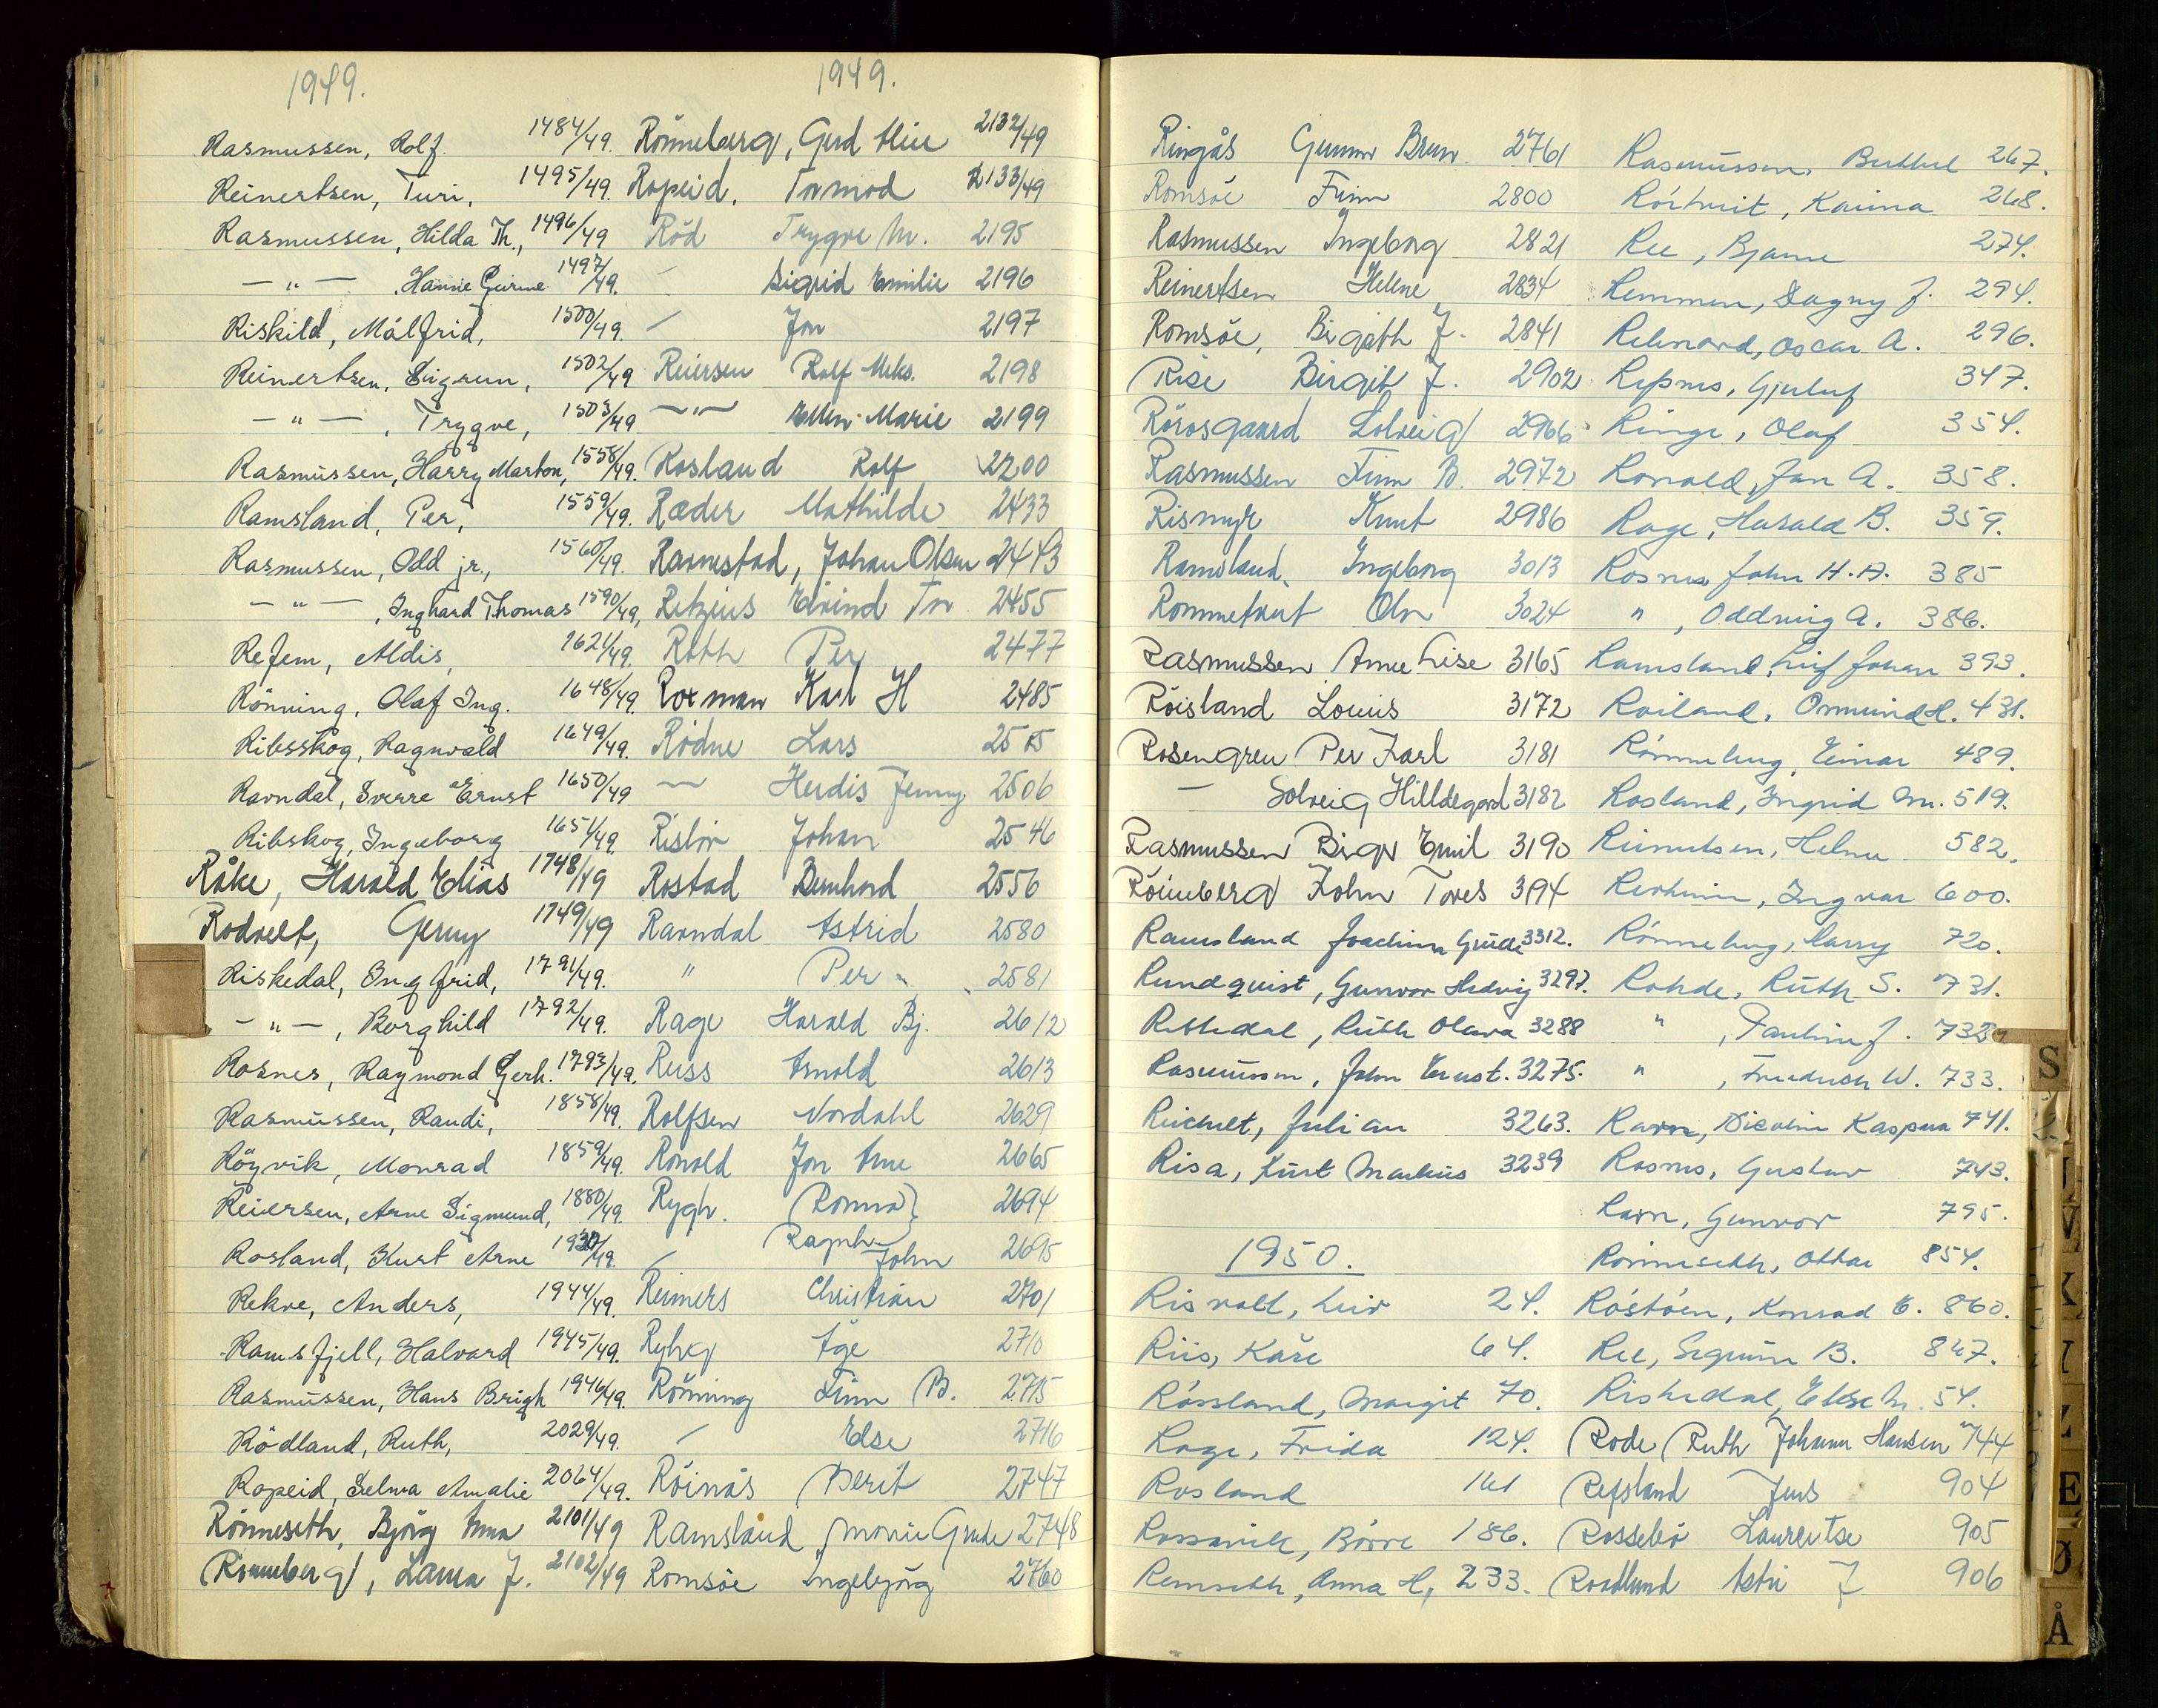 1949.
Rasmussen, Rolf. 1484/49.
Reinertsen, Turi, 1495/49.
Rasmussen, Hilda Th., 1496/49
— " — , Hanne 1497/49.
Riskild, Målfrid, 1500/49.
Reinertsen, Sigrun, 1502/49
— " — , Trygve, 1503/49
Rasmussen, Harry Marton, 1558/49.
Ramsland, Per, 1559/49.
Rasmussen, Odd jr., 1560/49.
— " — , Inghard Thomas 1590/49,
Refem, Aldis, 1621/49.
Rönning, Olaf Ing. 1648/49.
Ribsskog, Ragnvald 1649/49.
Ravndal, Sverre Ernst 1650/49
Ribskog, Ingeborg 1651/49.
Råke, Harald Elias 1748/49
Rodvelt, Gerny 1749/49
Riskedal, Ingfrid, 1791/49.
— " — , Borghild 1792/49.
Rosnes, Raymond Gerh. 1793/49.
Rasmussen, Randi, 1858/49.
Röyvik, Monrad 1859/49.
Reiersen, Arne Sigmund, 1880/49.
Rosland, Kurt Arne
Rekve, Anders, 1944/49.
Ramsfjell, Halvard 1945/49.
Rasmussen, Hans Brigh 1946/49.
Rödland, Ruth, 2029/49.
Ropeid, Selma Amalie 2064/49.
Rönneseth, Björg Anna 2101/49
Rönneberg, Laura J. 2102/49
1949.
Rönneberg, Gerd 2132/49
Ropeid, Tormod 2133/49
Röd Trygve M. 2195
Sigrid Emilie 2196
Jon 2197
Reiersen Rolf 2198
— " — Ellen-Marie 2199
Rosland Rolf 2200
Ræder Mathilde 2433
Ravnestad, Johan Olsen 2443
Retzius Eivind Tor 2455
Roth Per 2477
Roxman Karl H 2485
Rödne Lars 2505
— Herdis Jenny 2506
Rislöv Johan 2546
Rostad Bernhard 2556
Ravndal Astrid 2580
" Per 2581
Rage Harald Bj. 2612
Russ Arnold 2613
Rolfsen Nordahl 2629
Ronold Jon Arne 2665
Rygh. (Ronna) 2694
Ragnh. John 2695
Reimers Christian 2701
Åge 2710
Rönning Finn B. 2715
Else 2716
Röinås Berit 2747
Ramsland, Monie Grude 2748
Romsöe Ingebjörg 2760
Ringås Gunnar Brun 2761
Romsöe Finn 2800
Rasmussen Ingeborg 2821
Reinertsen Helene 2834
Romsöe, Birgith J. 2841
Rise Birgit J. 2902
Rörosgaard Solveig 2966
Rasmussen Finn B. 2972
Rismyr Knut 2986
Ramsland Ingeborg 3013
Rommetveit Olav 3024
Rasmussen Anne Lise 3165
Röisland Louis 3172
Rosengren Per Karl 3181
— Solveig Hilldegard 3182
Rasmussen Birger Emil 3190
Röineberg John Tores 3194
Ramsland Joachim Grude 3312.
Rundquist, Gunvor Hedvig 3297.
Ruth Olava 3288
Rasmussen, John Ernst. 3275.
Reichelt, Julian 3263.
Risa, Kurt Markus 3239
1950.
Risvolt, Liv 24.
Riis, Kåre 64.
Rössland, Margit 70.
Roge, Frida 124.
Rosland 161
Rossavik, Börre 186.
Remseth, Anna H, 233.
Rasmussen, 267.
Karina 268.
Ree, Bjarne 274.
Remmen, Dagny J. 294.
Oscar A. 296.
347.
Ringe, Olaf 354.
Ronold, Jan A. 358.
Rage, Harald B. 359.
Rosnes John H. A. 385
" , Oddveig A. 386.
Ramsland, Leif Johan 393.
Roiland, Osmund H. 431.
Rönneberg, Einar 489.
Rosland, Ingrid M. 519.
Reinertsen, Helene 582,
Ingvar 600.
Rönneberg, Harry 720.
Rohde, Ruth S. 731.
" , Pauline J. 732
" , Friedrich W. 733.
Ravn, Nicoline Kaspara 741.
Rosnes, Gustav 743.
Ravn, Gunvor 795.
Rönneseth, Ottar 854.
Röstöen, Konrad E. 860.
Ree, Sigrunn B. 847.
Riskedal, Else M. 54.
Rode Ruth Johanne Hansen 744
Refsland Jens 904
Rossebö Lauretse 905
Rosslund Astri J 906
S
V
K
Y
Z
E
Ø
Å